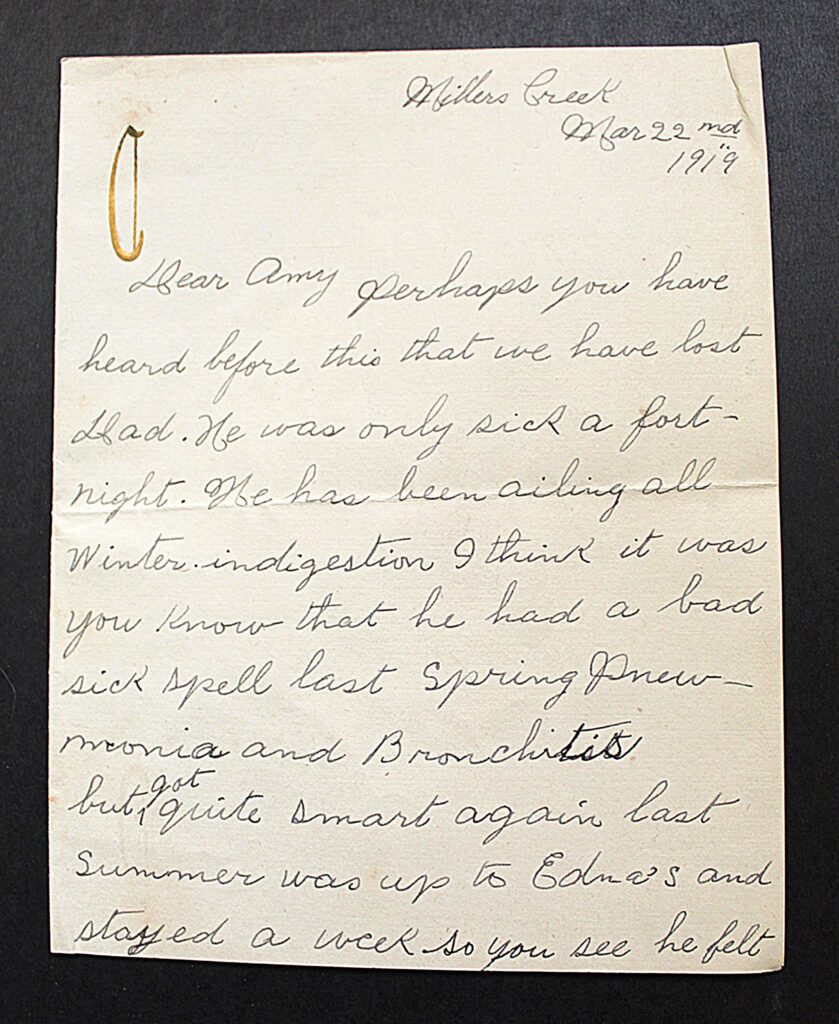 Millers Creek
Mar 22nd
1919
Dear Amy Perhaps you have
heard before this that we have lost
Dad. He was only sick a fort-
night. He has been ailing all
Winter. indigestion I think it was
you know that he had a bad
sick spell last Spring Pnew-
monia and Bronchitis
but got quite smart again last
Summer was up to Edna's and
stayed a week so you see he felt